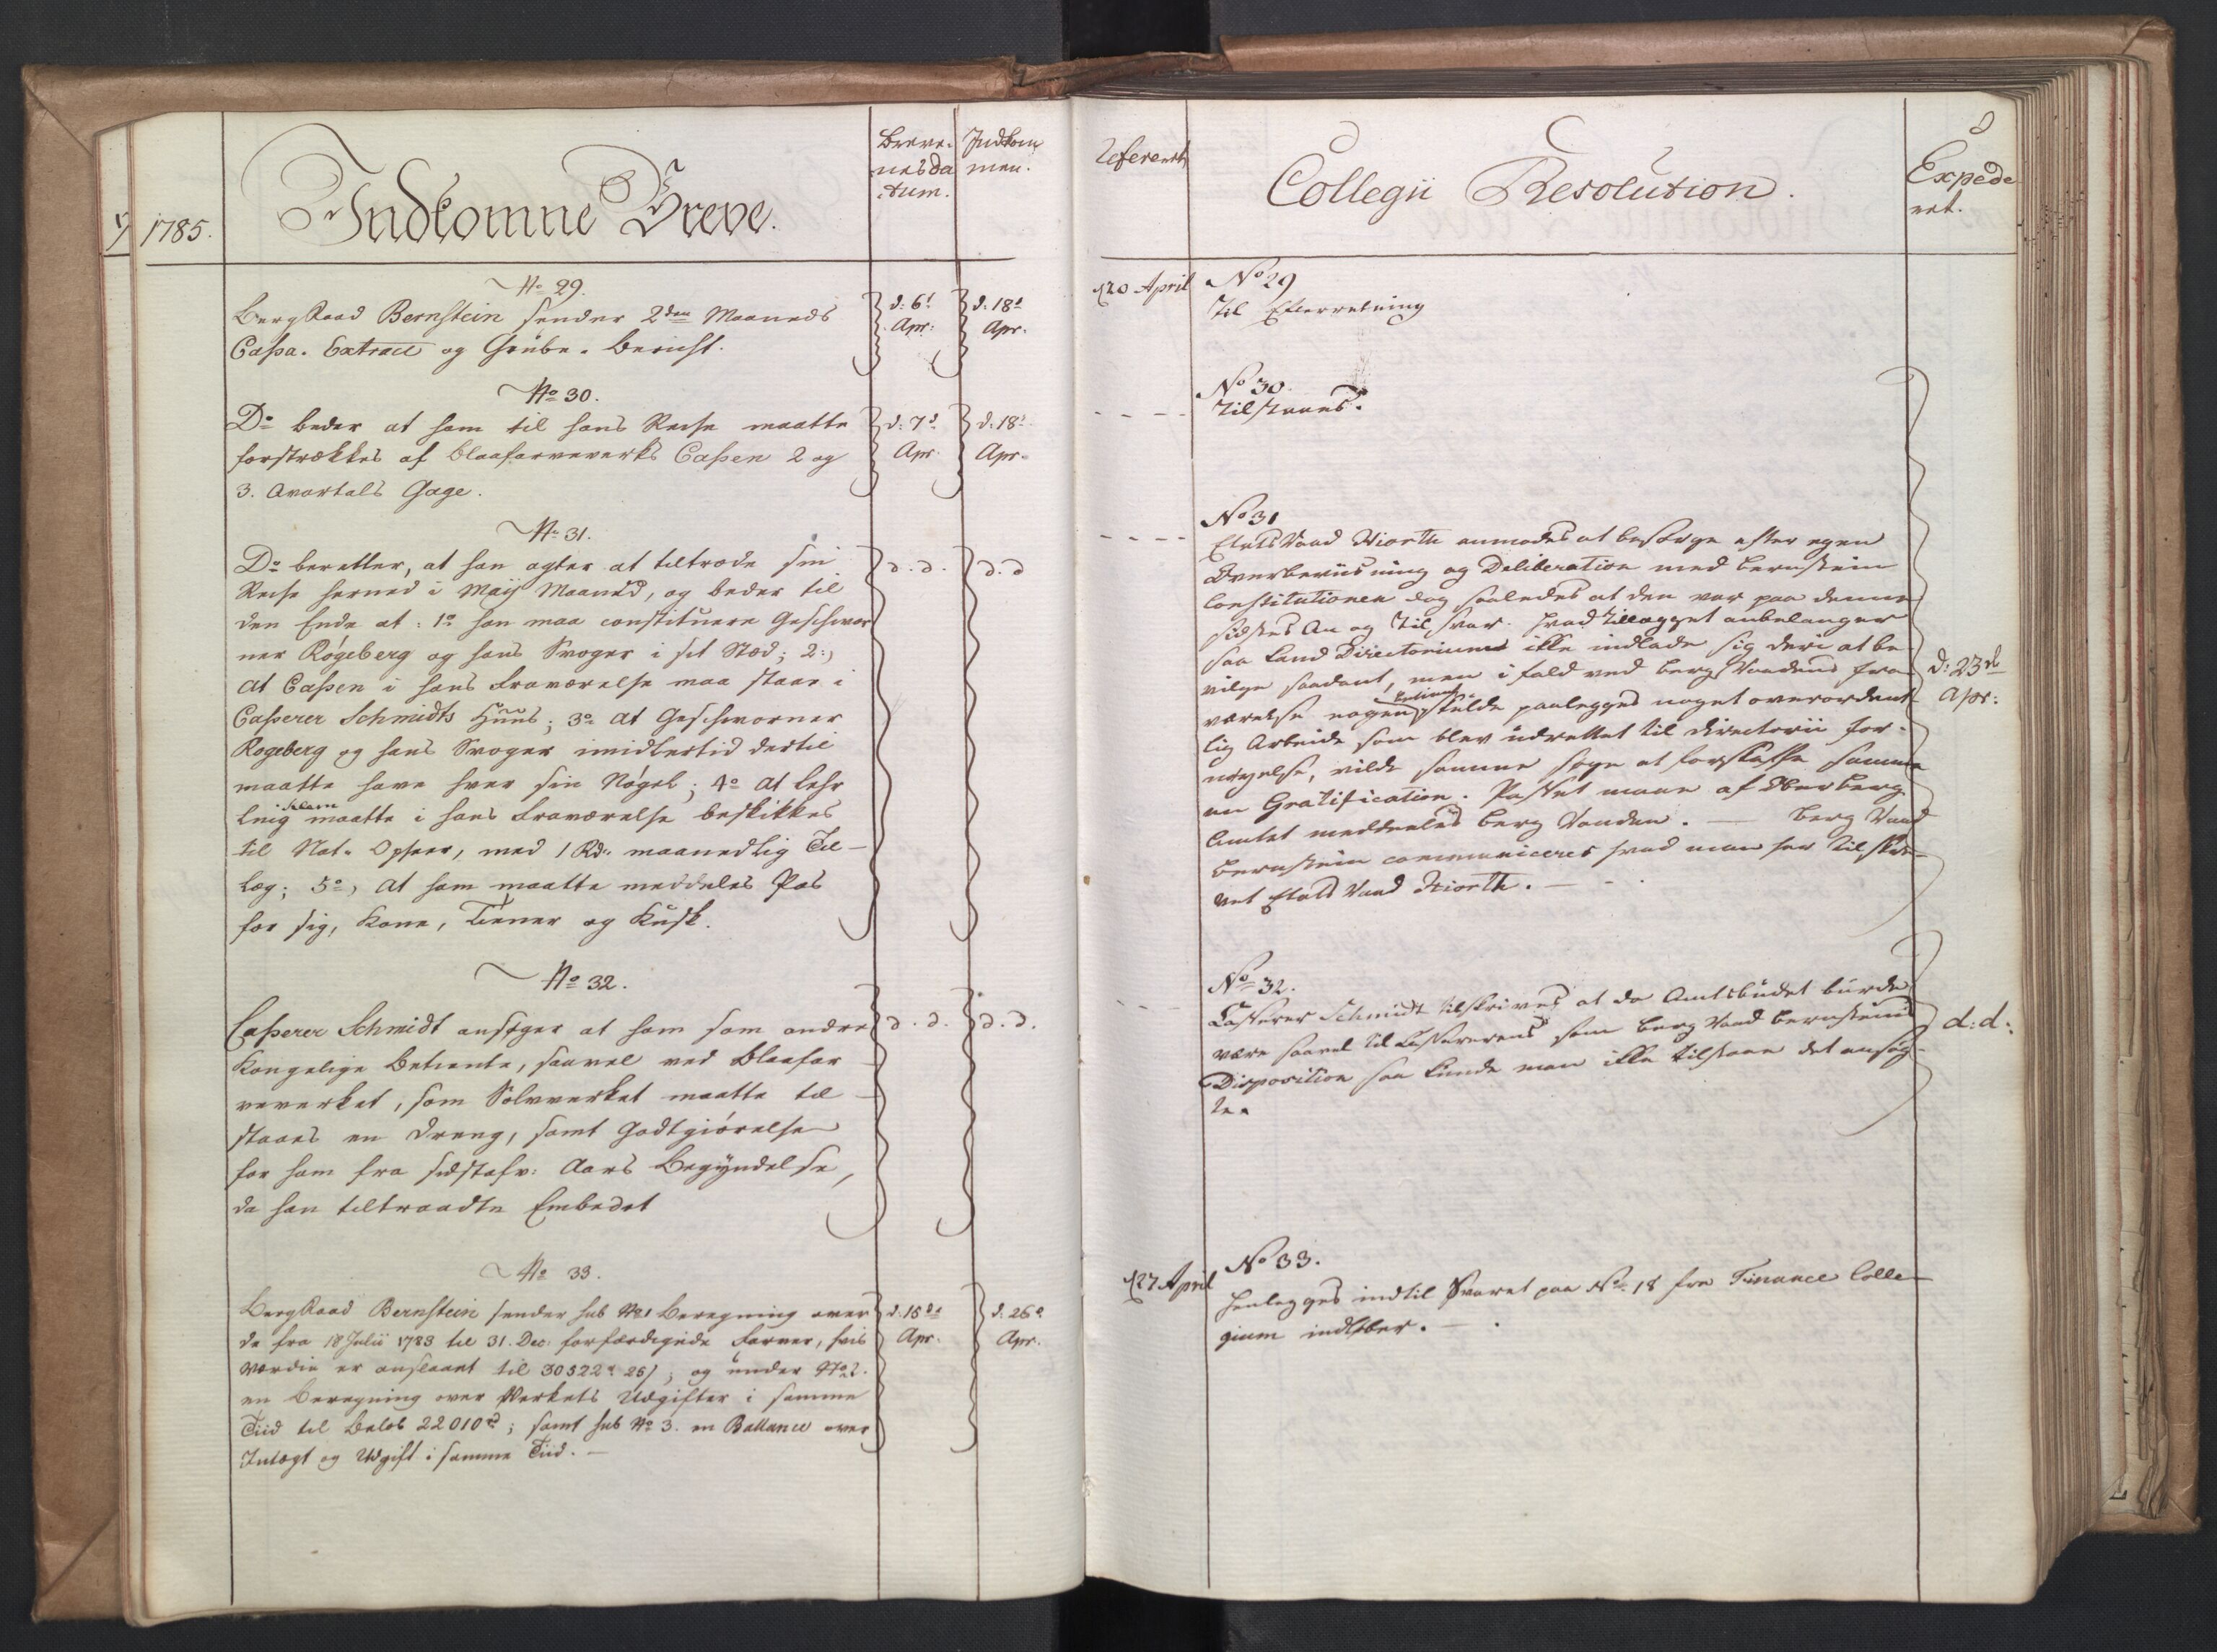 1785.
Indkomne Breve.
Breve-
nes Da
tum.
Indkom
men.
No 29.
BergRaad Bernstein sender 2den Maaneds
Cassa-Extract og Grube-Bericht.
d: 6t
Apr:
d. 18d
Apr.
No 30.
Do beder at ham til hans Reise maatte
forstrækkes af Blaafarveverks Cassen 2 og
3. Qvartals Gage.
d: 7d
Apr.
d. 18d
Apr.
No 31.
Do beretter, at han agter at tiltræde sin
Reise herned i Maij Maaned, og beder til
den Ende at: 1o han maa constituere Geschwor
ner Røgeberg og hans Svoger i sit Stæd; 2:)
At Cassen i hans Fraværelse maa staae i
Casserer Schmidts Huus; 3o At Geschworner
Røgeberg og hans Svoger imidlertid dertil
maatte have hver sin Nøgel; 4o At Lehr
ling maatte i hans Fraværelse beskikkes
til Nat-Opseer, med 1 Rd. maanedlig Til-
læg; 5o, At ham maatte meddeles Pas
for sig, Kone, Tiener og Kusk.
d. d.
d. d
No 32.
Casserer Schmidt ansøger at ham som andre
Kongelige Betiente, saavel ved Blaafar
veverket, som Sølvverket maatte til-
staaes en Dreng, samt Godtgiørelse
for ham fra sidstafv: Aars Begyndelse,
da han tiltraadte Embedet
d. d.
d. d.
No 33.
BergRaad Bernstein sender sub No 1 Beregning over
de fra 18 Julii 1783 til 31. Dec: forfærdigede Farver, hvis
Værdie er anslaaet til 30522 rd 26 s; og under No 2.
en Beregning over Verkets Udgifter i samme
Tiid til Beløb 22010 rd; samt sub No 3. en Ballance over
Indtægt og Udgift i samme Tiid.
d. 15de
Apr.
d. 26d
Apr.
Referent
Collegii Resolution.
8
Expede
ret.
d 20 April
No 29
Til Efterretning
No 30.
Tilstaaes.
No 31
EtatsRaad Hiorth anmodes at besørge efter egen
Overbeviisning og Deliberation med Bernstein
Constitutionen dog saaledes at den var paa denne
sidstes An og Tilsvar. Hvad Tillægget anbelanger
saa kand Directorium ikke indlade sig deri at be-
vilge saadant, men i fald ved BergRaadens Fra-
værelse nogen Betient skulde paalegges noget overordent-
lig Arbeide som blev udrettet til Directorii For-
nøyelse, vilde samme søge at forskaffe samme
en Gratification. Passet maae af OberBerg-
Amtet meddeeles Berg Raaden. — Berg Raad
Bernstein communiceres hvad man har tilskre-
vet Etats Raad Hiorth.
d: 23d
Apr:
No 32.
Casserer Schmidt tilskrives at da Amtsbudet burde
være saavel til Cassererens som Berg Raad Bernsteins
Disposition saa kunde man ikke tilstaae det ansøg-
te.
d: d:
d 27 April
No 33.
Henlegges indtil Svaret paa No 18 fra Finance Colle-
gium indløber.